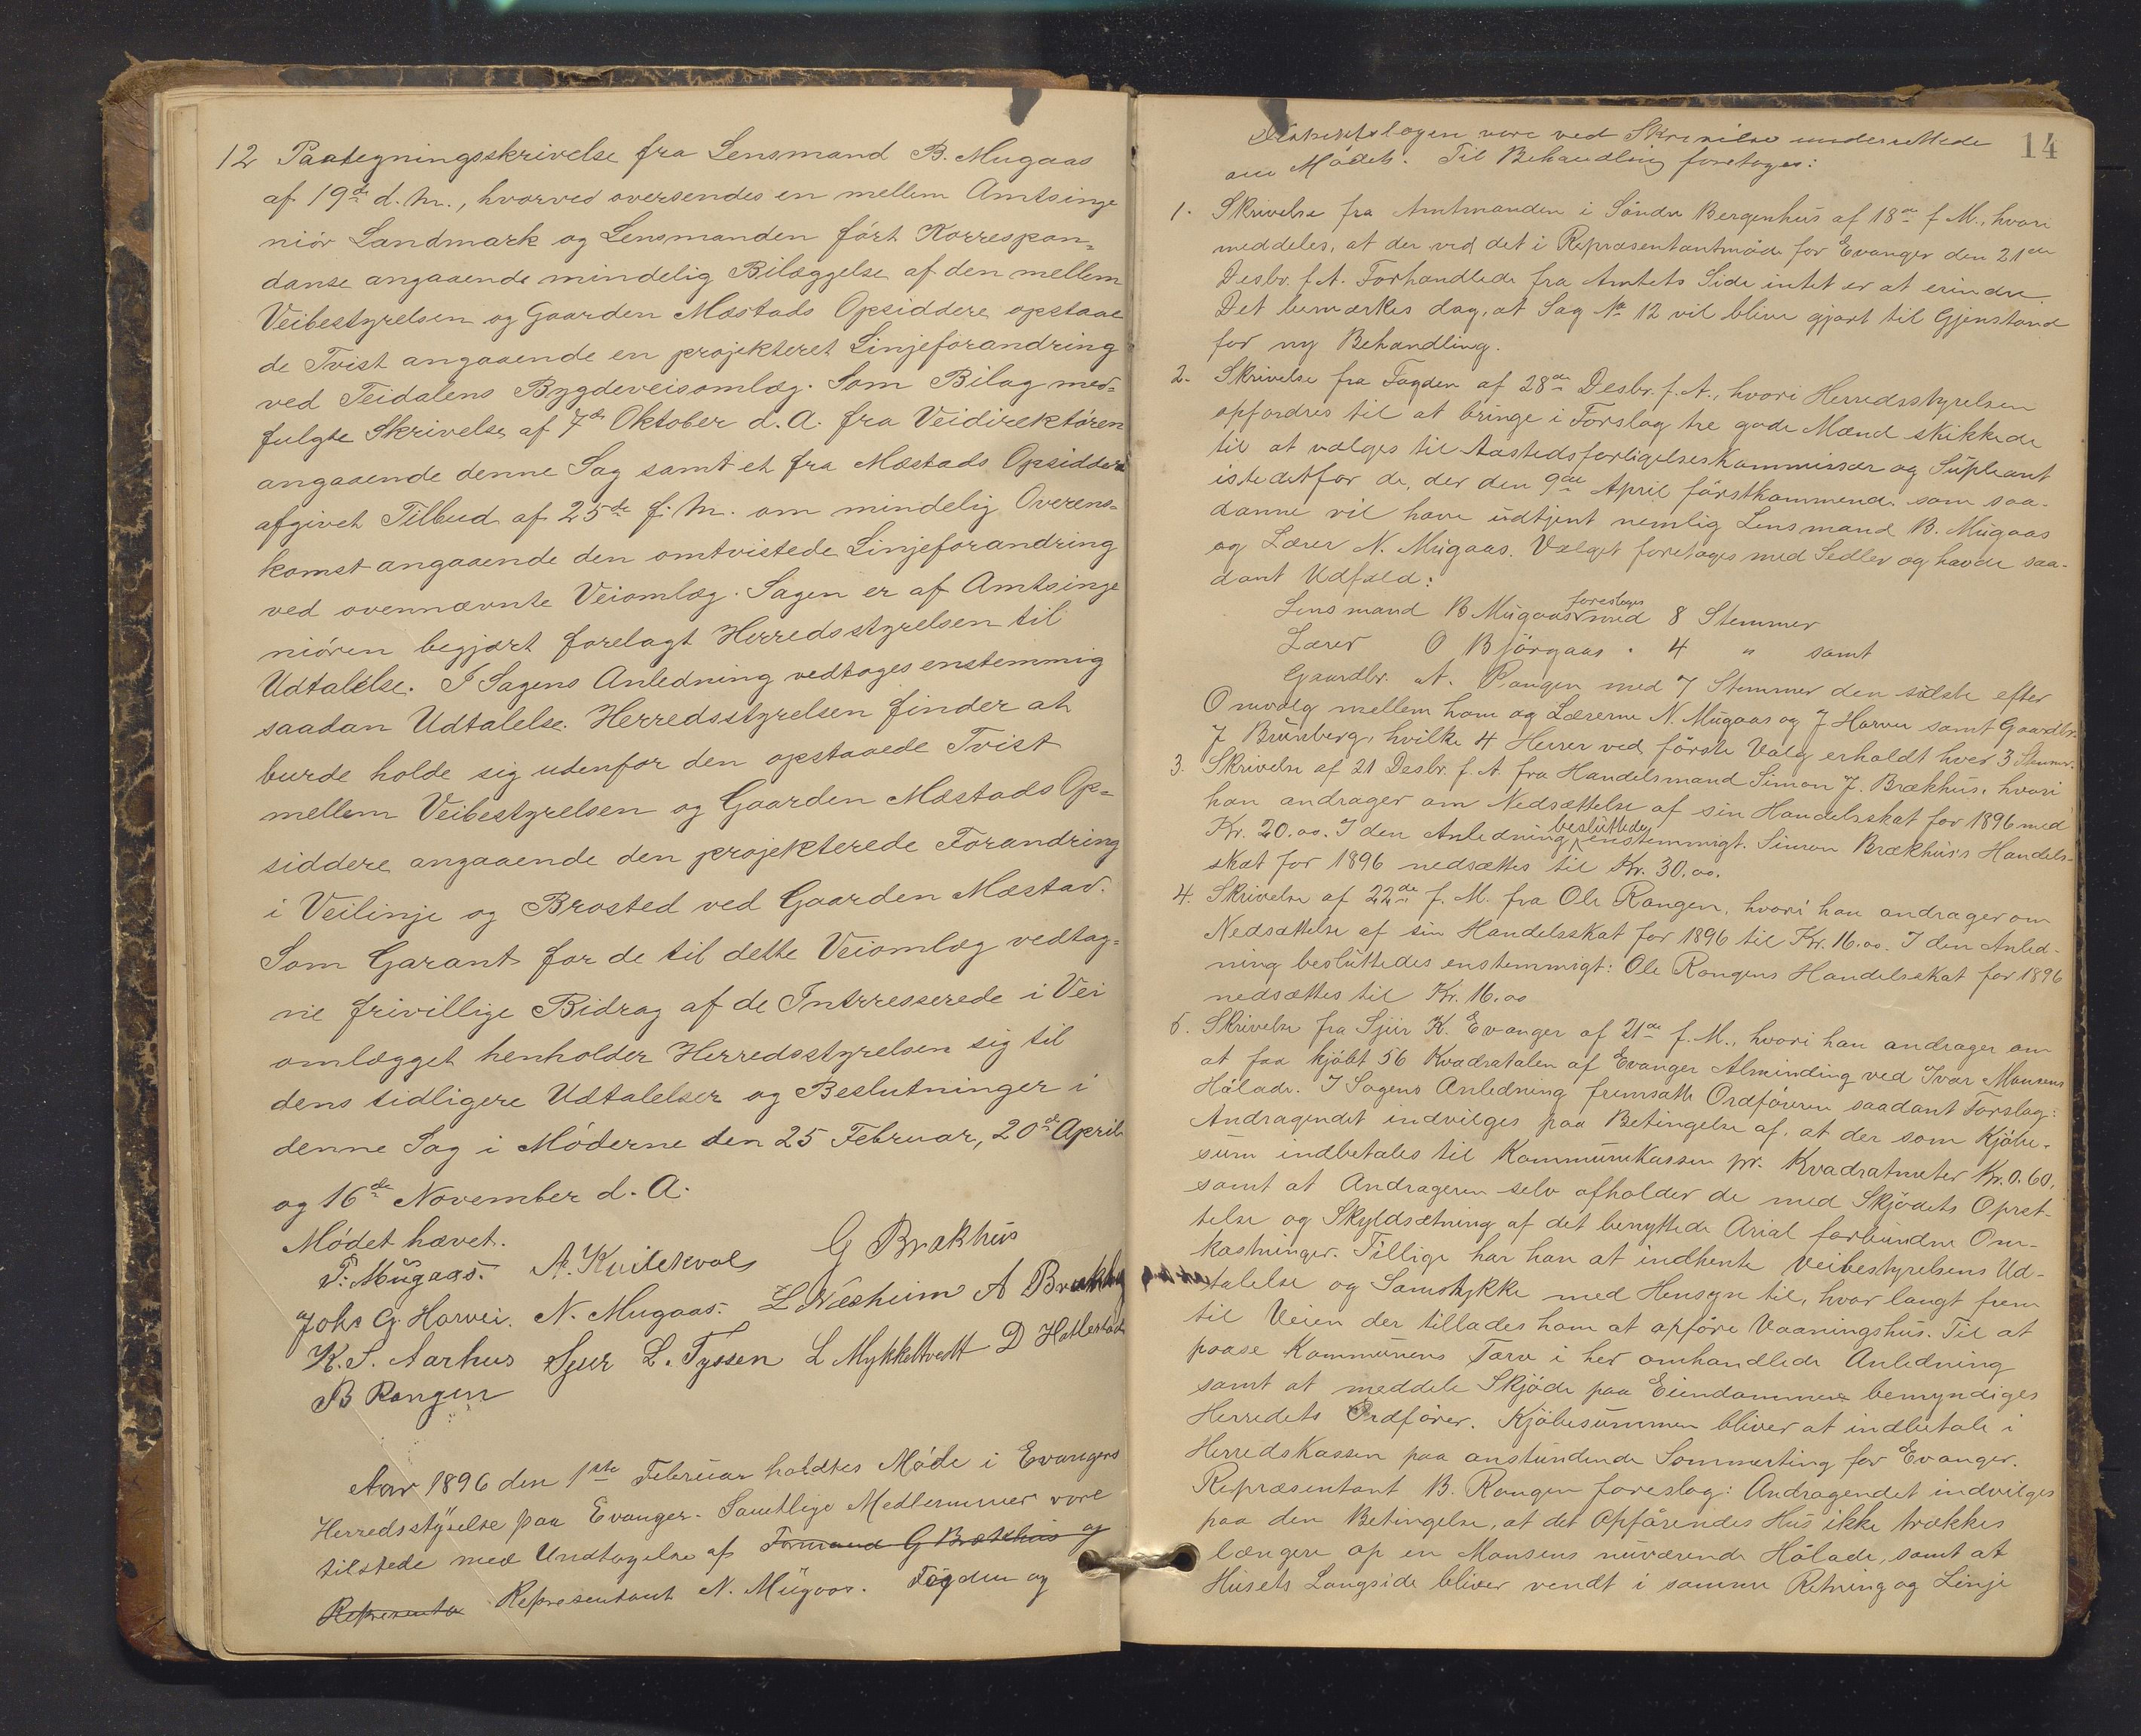 12 Paategningsskrivelse fra Lensmand B. Mugaas
af 19de d. M., hvorved oversendes en mellem Amtsinge
niör Landmark og Lensmanden fört Korrespon=
danse angaaende mindelig Bilæggelse af den mellem
Veibestyrelsen og Gaarden Mæstads Opsiddere opstaae
de Tvist angaaende en projekteret Linjeforandring
ved Teidalens Bygdeveisomlæg. Som Bilag med=
fulgte Skrivelse af 7de Oktober d. A. fra Veidirektören
angaaende denne Sag samt et fra Mæstads Opsiddere
afgivet Tilbud af 25de f. M. om mindelig Overens=
komst angaaende den omtvistede Linjeforandring
ved ovennævnte Veiomlæg. Sagen er af Amtsinge
niören begjært forelagt Herredsstyrelsen til
Udtalelse. I Sagens Anledning vedtoges enstemmig
saadan Udtalelse. Herredsstyrelsen finder at
burde holde sig udenfor den opstaaede Tvist
mellem Veibestyrelsen og Gaarden Mæstads Op=
siddere angaaende den projekterede Forandring
i Veilinje og Brosted ved Gaarden Mæstad.
Som Garant for de til dette Veiomlæg vedtag=
ne frivillige Bidrag af de Intrresserede i Vei
omlægget henholder Herredsstyrelsen sig til
dens tidligere Udtalelser og Beslutninger i
denne Sag i Möderne den 25 Februar, 20de April
og 16de November d. A.
Mödet hævet.
P. Mügaas. A. Kvilekval G Brækhüs
Johs G. Horvei. N. Mugaas. L Næsheim A Brækhus
K. S. Aarhus Sjur L. Tyssen L Mykkeltvedt D Hallestad
B Rongen
Aar 1896 den 1ste Februar holdtes Möde i Evangers
Herredsstyrelse paa Evanger. Samtlige Medlemmer vare
tilstede med Undtagelse af Formand G Brækhus og
Representa Representant N. Mügaas. Fogden og
14
Distriktslægen vare ved Skrivelse underrettede
om Mödet. Til Behandling foretoges:
1. Skrivelse fra Amtmanden i Söndre Bergenhus af 18de f. M., hvori
meddeles, at der ved det i Repræsentantmöde for Evanger den 21de
Desbr. f. A. Forhandlede fra Amtets Side intet er at erindre.
Det bemærkes dog, at Sag No 12 vil blive gjort til Gjenstand
for ny Behandling.
2. Skrivelse fra Fogden af 28de Desbr. f. A., hvori Herredsstyrelsen
opfordres til at bringe i Forslag tre gode Mænd skikkede
til at vælges til Aastedsforligelseskommissær og Süpleant
istedetfor de, der den 9de April förstkommende som saa-
danne vil have üdtjent nemlig Lensmand B. Mügaas
og Lærer N. Mügaas. Valget foretoges med Sedler og havde saa-
dant Udfald:
Lensmand B Mügaas foreslages med 8 Stemmer
Lærer O Björgaas " 4 " samt
Gaardbr. A. Rongen med 7 Stemmer den sidste efter
Omvalg mellem ham og Lærerne N. Mügaas og J Horvei samt Gaardbr.
J Brünberg, hvilke 4 Herrer ved förste Valg erholdt hver 3 Stemmer.
3. Skrivelse af 21 Desbr. f. A. fra Handelsmand Simon J. Brækhüs, hvori
han andrager om Nedsættelse af sin Handelsskat for 1896 med
Kr. 20.00. I den Anledning beslüttedes enstemmigt. Simon Brækhüs's Handels-
skat for 1896 nedsættes til Kr. 30.00.
4. Skrivelse af 22de f. M. fra Ole Rongen, hvori han andrager om
Nedsættelse af sin Handelsskat for 1896 til Kr. 16.00. I den Anled-
ning beslüttedes enstemmigt: Ole Rongens Handelsskat for 1896
nedsættes til Kr. 16.00
5. Skrivelse fra Sjür K. Evanger af 21de f. M., hvori han andrager om
at faa kjöbt 56 Kvadratalen af Evanger Alminding ved Ivar Monsens
Hölade. I Sagens Anledning fremsatte Ordföreren saadant Forslag:
Andragendet indvilges paa Betingelse af, at der som Kjöbe-
süm indbetales til Kommünekassen pr. Kvadratmeter Kr. 0.60,
samt at Andrageren selv afholder de med Skjödets Opret-
telse og Skyldsætning af det benyttede Arial forbündne Om-
kostninger. Tillige har han at indhente Veibestyrelsens Ud-
talelse og Samtykke med Hensyn til, hvor langt frem
til Veien der tillades ham at opföre Vaaningshüs. Til at
paase Kommünens Tarv i her omhandlede Anledning
samt at meddele Skjöde paa Eiendommen bemyndiges
Herredets Ordförer. Kjöbesümmen bliver at indbetale i
Herredskassen paa anstündende Sommerting for Evanger.
Repræsentant B. Rongen foreslog: Andragendet indvilges
paa den Betingelse, at det Opförendes Hüs ikke trækkes
længere op en Monsens nüværende Hölade, samt at
Hüsets Langside bliver vendt i samme Retning og Linje